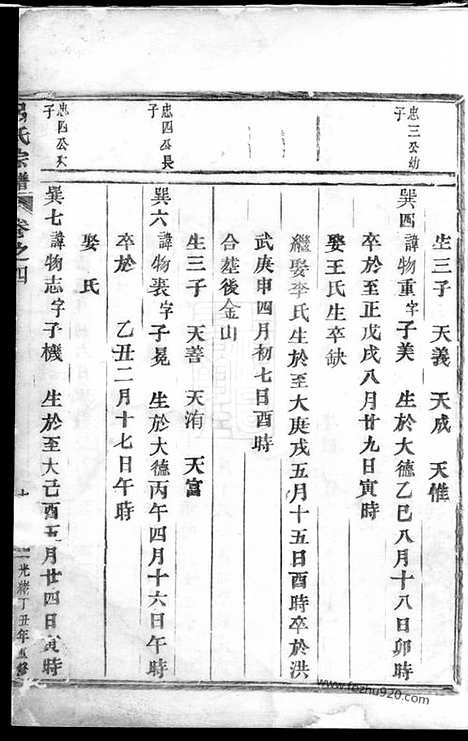 生三子 天義 天成 天惟
忠三公幼子
巽四諱物重字子美 生於大德乙巳八月十八日卯時
卒於至正戊戌八月廿九日寅時
娶王氏生卒缺
繼娶李氏生於至大庚戌五月十五日酉時卒於洪
武庚申四月初七日酉時
合墓後金山
生三子 天善 天洧 天富
忠四公長子
巽六諱物裘字子冕 生於大德丙午四月十六日午時
卒於 乙丑二月十七日午時
娶 氏
忠四公次子
巽七諱物志字子機 生於至大己酉五月廿四日寅時
氏宗譜 卷之四
光緒丁丑年重修
www.fozhu920.com